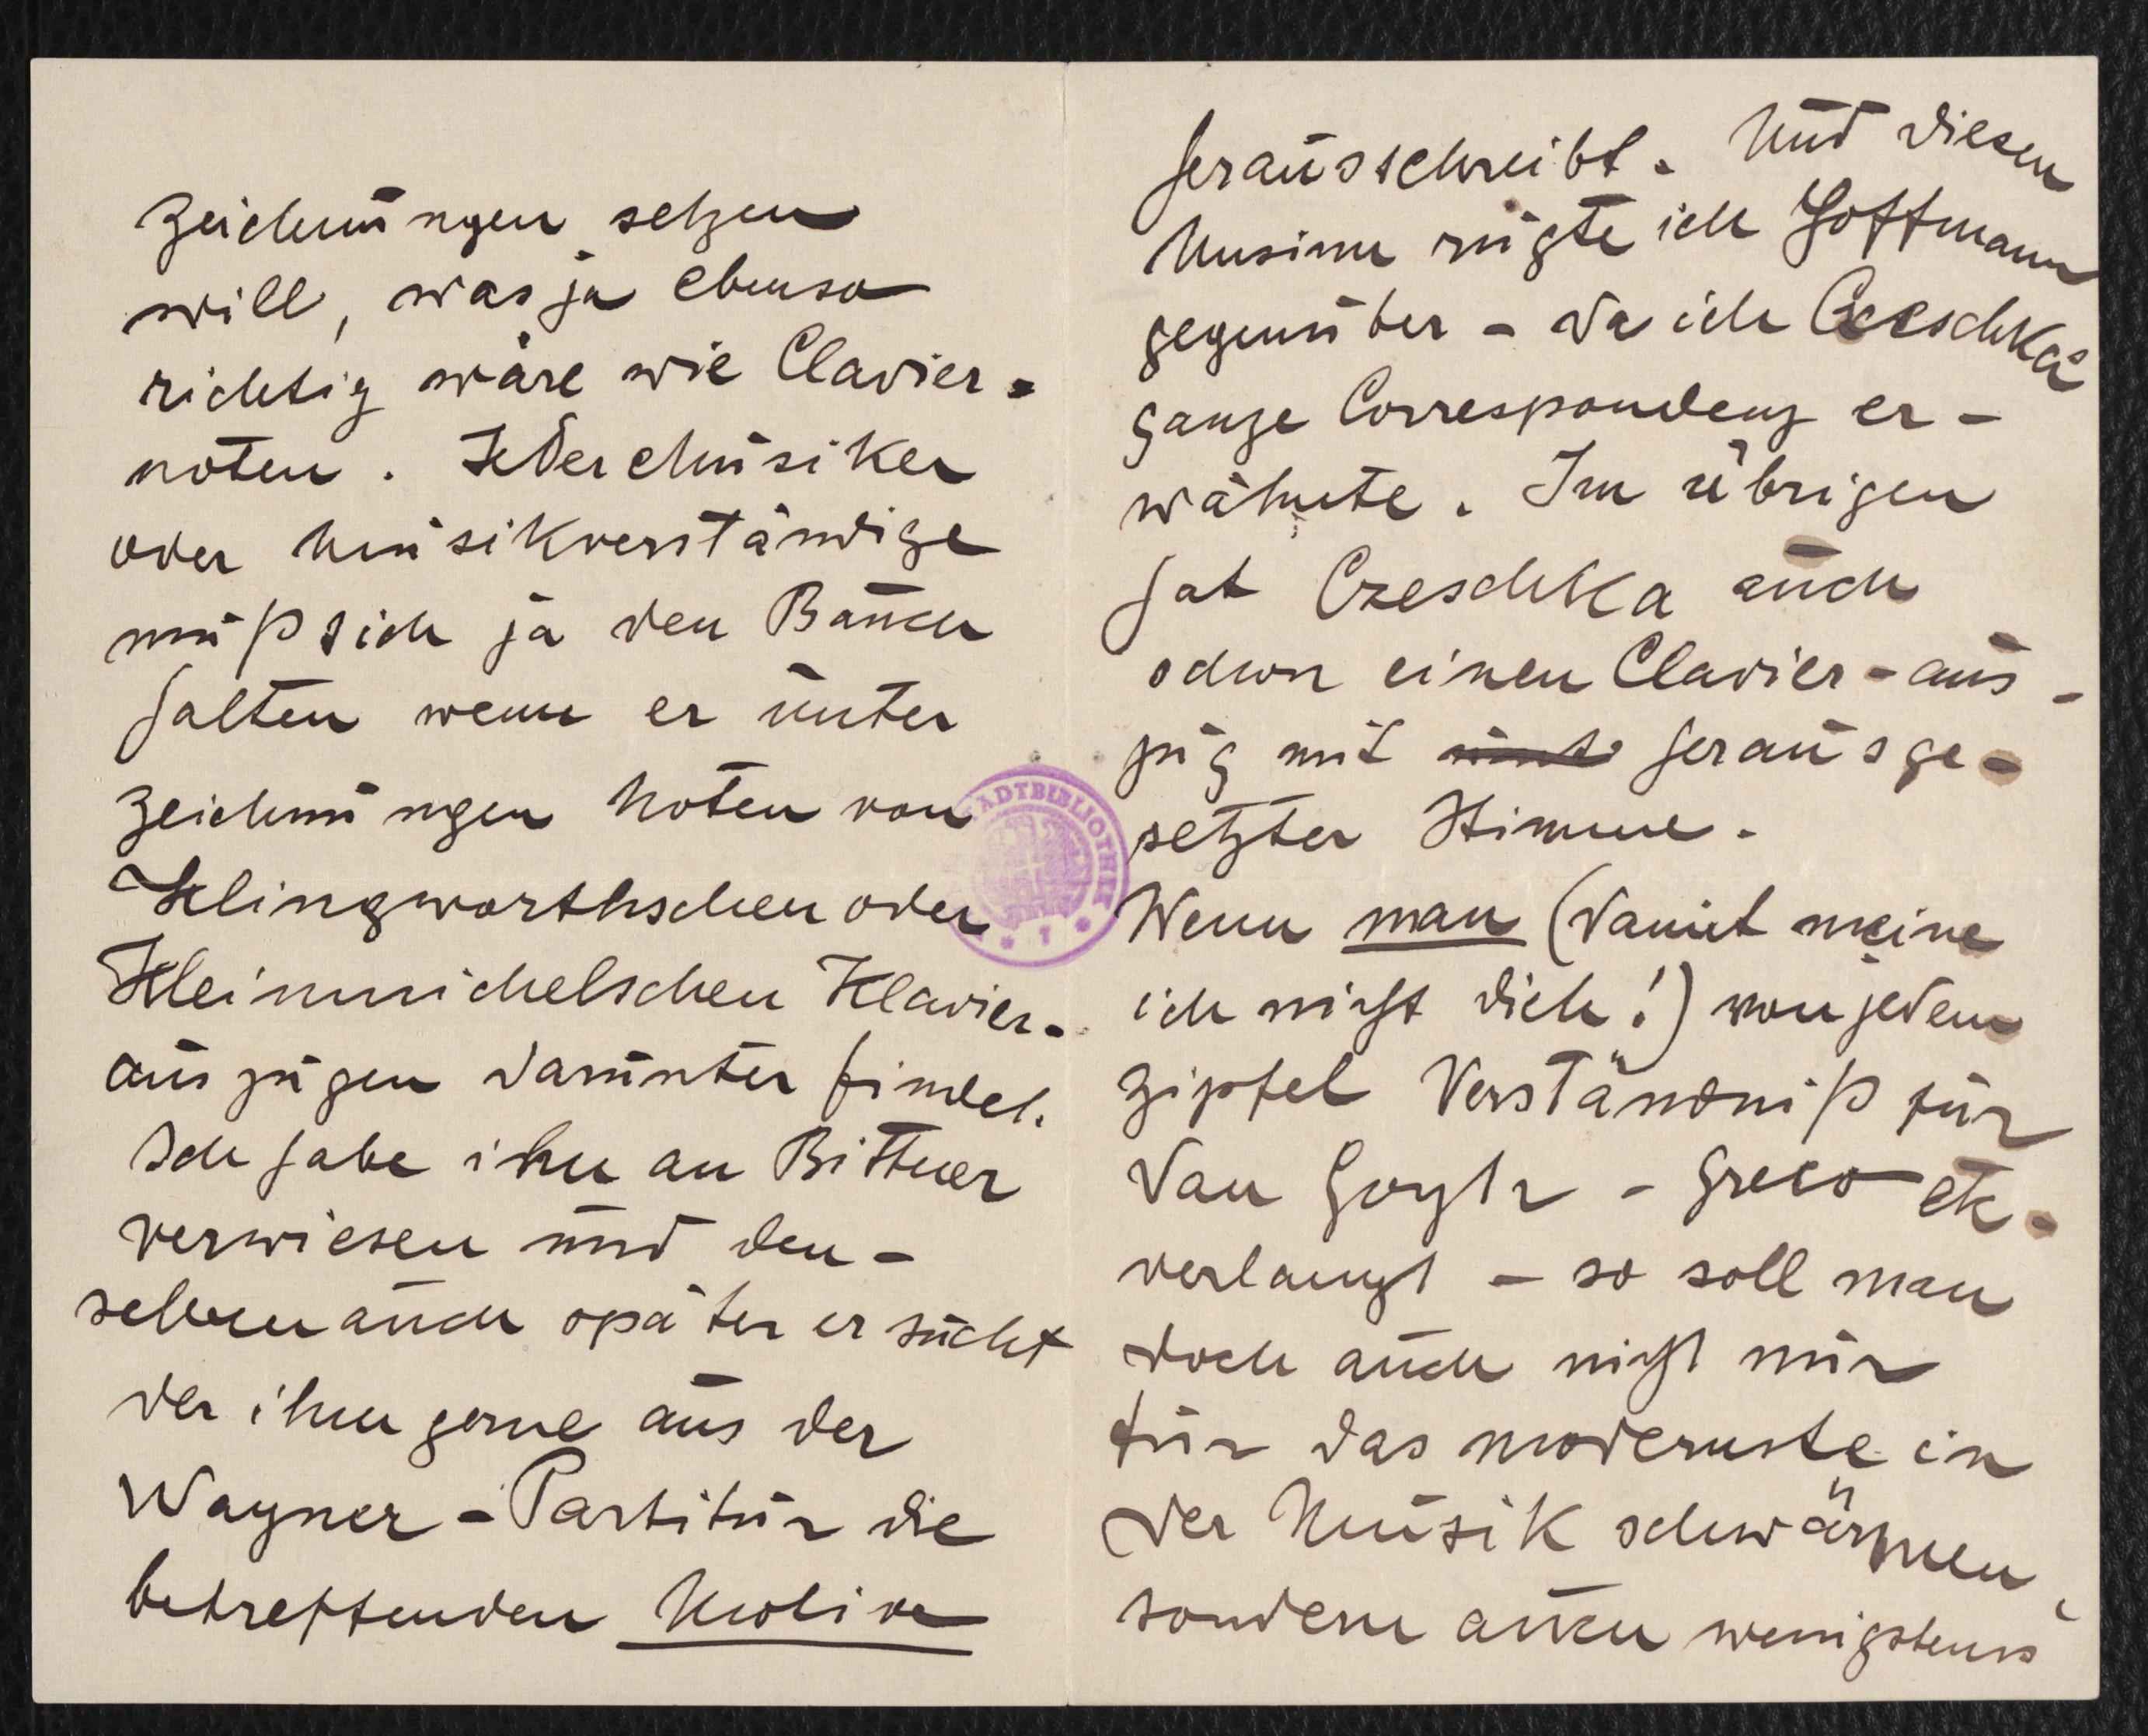 Zeichnungen setzen
will, was ja ebenso
richtig wäre wie Clavier-
noten. Jeder Musiker
oder Musikverständige
muß sich ja den Bauch
halten wenn er unter
Zeichnungen Noten von
Klingworthschen oder
Kleinmichelschen Klavier-
auszügen darunter findet.
Ich habe ihn an Bittner
verwiesen und den-
selben auch später ersucht
der ihm gerne aus der
Wagner-Partitur die
betreffenden Motive
herausschreibt. Und diesen
Unsinn rügte ich Hoffmann
gegenüber - da ich Czeschka's
ganze Correspondenz er-
wähnte. Im übrigen
hat Czeschka auch
schon einen Clavier-aus-
zug mit herausge-
setzter Stimme.
Wenn man (damit meine
ich nicht dich!) von jedem
Zipfel Verständniß für
Van Gogh - Greco etc.
verlangt - so soll man
doch auch nicht nur
für das modernste in
der Musik schwärmen,
sondern auch wenigstens
STADTBIBLIOTHEK
* 1 *